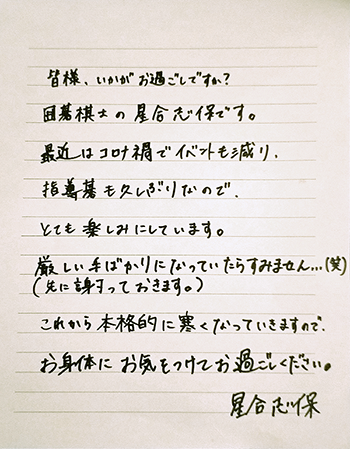 皆様、いかがお過ごしですか?
囲碁棋士の星合志保です。
最近はコロナ禍でイベントも減り、
指導碁も久しぶりなので、
とても楽しみにしています。
厳しい手ばかりになっていたらすみません...(笑)
(先に謝っておきます。)
これから本格的に寒くなっていきますので、
お身体にお気をつけてお過ごしください。
星合志保